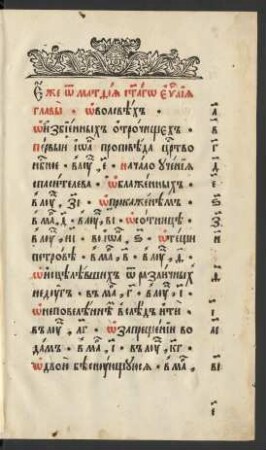 Єже ѿ матѳїа ст҃агѡ єѵⷢ҇лїа
главы̀ · ѡ волсвѣхъ ·
ѡ и҆збїенныхъ ѻтрочищехъ ·
первыи і҆ѡа проповѣда црⷭ҇тво
нбⷭ҇ное · в луⷦ҇, г҃ · начало ᲂу҆ченїѧ
спасителева · ѡ блаженныхъ
в луⷦ҇, з҃і · ѡ прокаженѣмъ ·
в маⷬ҇, д҃ · в луⷦ҇, в҃і · ѡ сотницѣ
в луⷦ҇, и҃і · в і҆ѡа, ѕ҃ · ѡ тещи
петровѣ · в маⷬ҇, в҃ · в луⷦ҇, д҃ ·
ѡ и҆сцѣлѣвшихъ ѿ различныхъ
недугъ · в маⷬ҇, г҃ · в луⷦ҇, і҃
ѡ неповелѣннѣ вслѣдъ и҆ти
в луⷦ҇, л҃г · ѡ запрещенїи во
дамъ · в маⷬ҇, і҃ · в луⷦ҇, к҃г
ѡ двою̀ бѣснꙋющꙋюсѧ · в маⷬ҇,
а҃
в҃
г҃
д҃
є҃
ѕ҃
з҃
и҃
ѳ҃
і҃
а҃і
в҃і